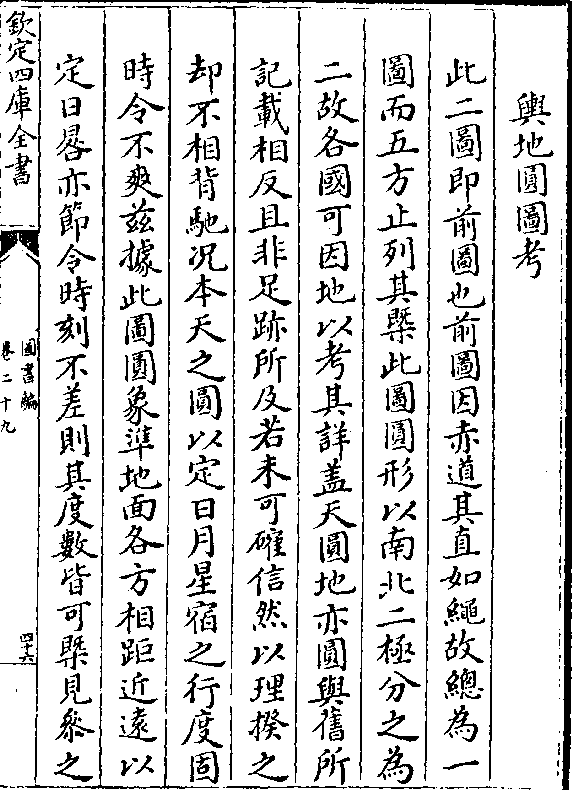 輿地圓圖考
此二圖即前圖也前圖因赤道其直如繩故總為一
圖而五方止列其槩此圖圓形以南北二極分之為
二故各國可因地以考其詳蓋天圓地亦圓與舊所
記載相反且非足跡所及若未可確信然以理揆之
却不相背馳况本天之圓以定日月星宿之行度固
時令不爽兹據此圖圓象準地面各方相距近遠以
定日晷亦節令時刻不差則其度數皆可槩見叅之
欽定四庫全書
圖書編
卷二十九
四十六